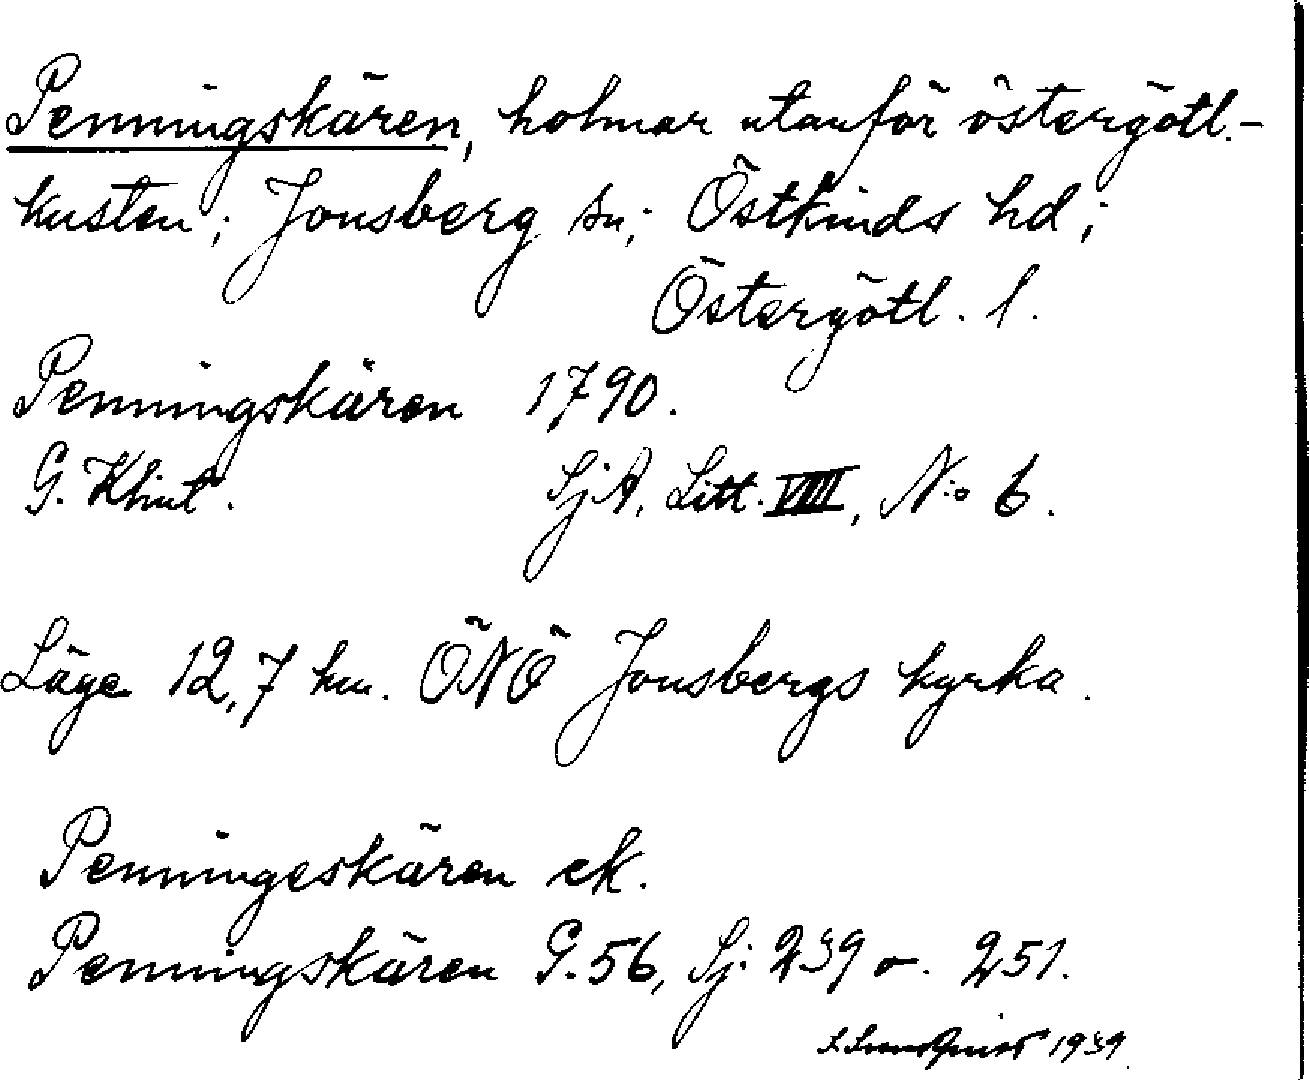 Penningskären, holmar utanför östergötl.-
kusten; Jonsberg sn; Östkinds hd;
Östergötl. l.
Penningskären 1790.
G. Klint. SjA, Litt. VIII, N:o 6.
Läge 12,7 km. ÖNÖ Jonsbergs kyrka.
Penningeskären ek.
Penningskären G. 56, Sj: 239 o. 251.
1939